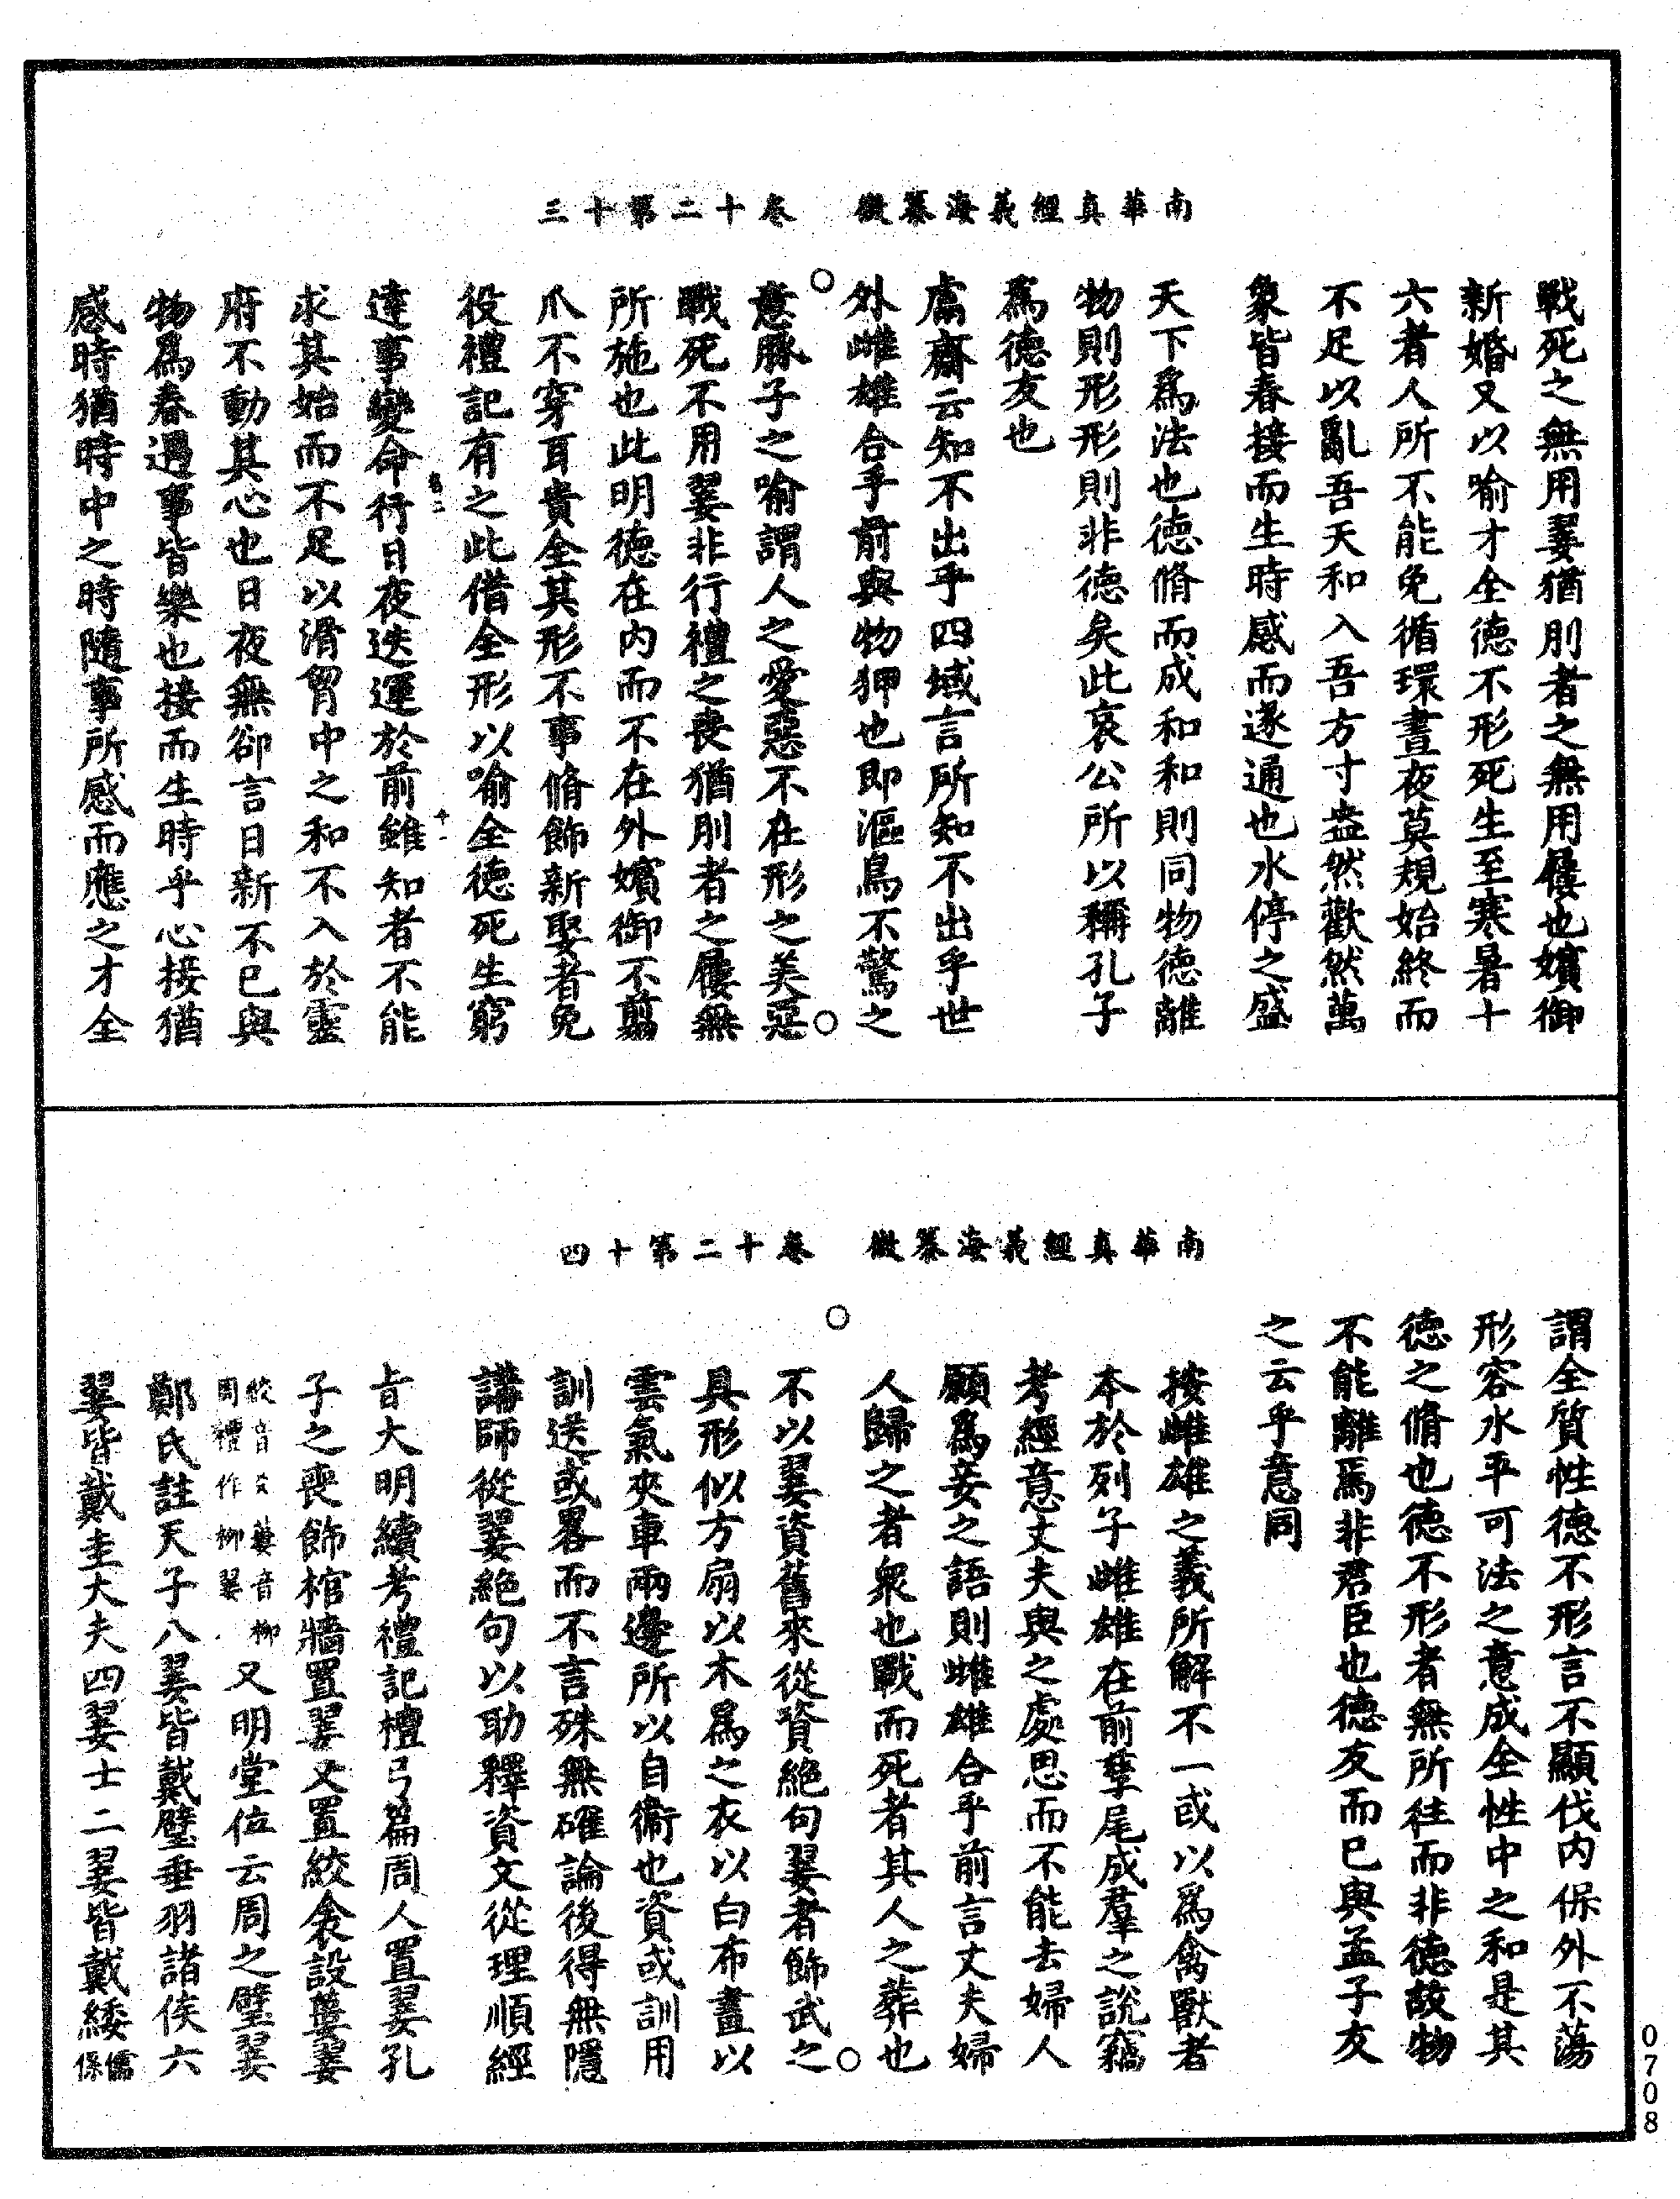 南華真經義海纂微　卷十二第十三
戰死之無用翣猶刖者之無用屨也嬪御
新婚又以喻才全德不形死生至寒暑十
六者人所不能免循環晝夜莫規始終而
不足以亂吾天和入吾方寸盎然歡然萬
象皆春接而生時感而遂通也水停之盛
天下為法也德脩而成和和則同物德離
物則形形則非德矣此哀公所以稱孔子
為德友也
鬳齋云知不出乎四域言所知不出乎世
外雌雄合乎前與物狎也即漚鳥不驚之
意豚子之喻謂人之愛惡不在形之美惡
戰死不用翣非行禮之喪猶刖者之屨無
所施也此明德在內而不在外嬪御不翦
爪不穿耳貴全其形不事脩飾新娶者免
役禮記有之此借全形以喻全德死生窮
達事變命行日夜迭運於前雖知者不能
求其始而不足以滑胷中之和不入於靈
府不動其心也日夜無卻言日新不已與
物為春遇事皆樂也接而生時乎心接猶
感時猶時中之時隨事所感而應之才全
南華真經義海纂微　卷十二第十四
謂全質性德不形言不顯伐內保外不蕩
形容水平可法之意成全性中之和是其
德之脩也德不形者無所往而非德故物
不能離焉非君臣也德友而已與孟子友
之云乎意同
按雌雄之義所解不一或以為禽獸者
本於列子雌雄在前孳尾成羣之說竊
考經意丈夫與之處思而不能去婦人
願為妾之語則雌雄合乎前言丈夫婦
人歸之者眾也戰而死者其人之葬也
不以翣資舊來從資絕句翣者飾武之
具形似方扇以木為之衣以白布畫以
雲氣夾車兩邊所以自衞也資或訓用
訓送或畧而不言殊無確論後得無隱
講師從翣絕句以助釋資文從理順經
旨大明續考禮記檀弓篇周人置翣孔
子之喪飾棺牆置翣又置絞衾設蔞翣
絞音爻蔞音柳
周禮作柳翣
又明堂位云周之璧翣
鄭氏註天子八翣皆戴璧垂羽諸侯六
翣皆戴圭大夫四翣士二翣皆戴綏儒
保
0708